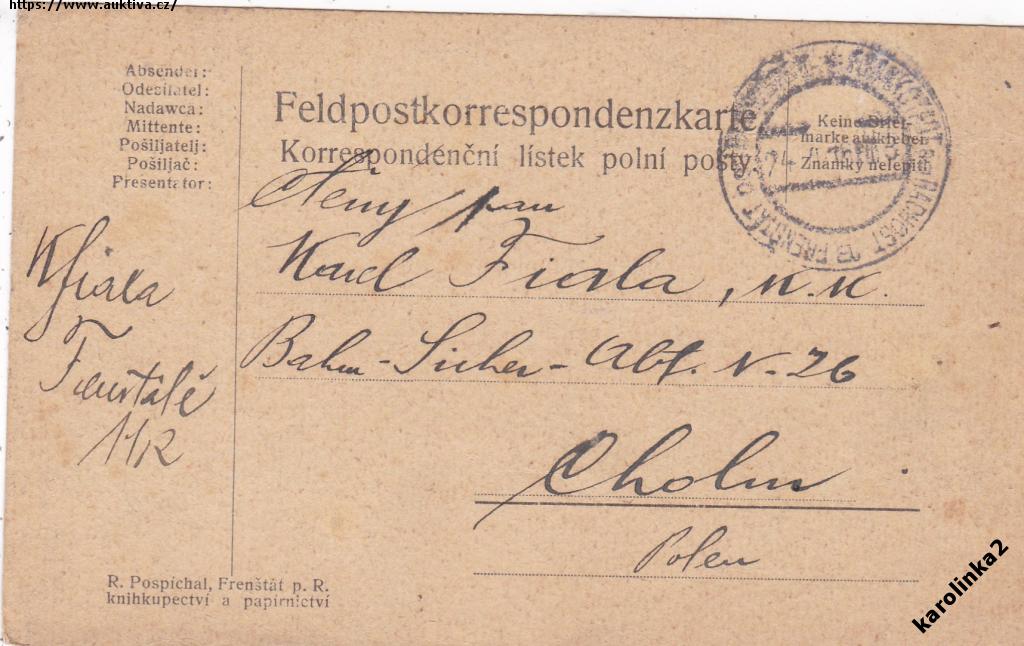 https://www.auktiva.cz/
Absender:
Odesílatel:
Nadawca:
Mittente:
Pošiljatelj:
Pošiljač:
Presentator:
Feldpostkorrespondenzkarte
Korrespondenční lístek polní pošty
Keine Brief-
marke aufkleben
Známky nelepiti
FRENŠTÁT RADHOST
Ctěný pan
Karel Fiala, K. K.
Bahn-Sicher-Abt. N-26
Cholm
Polen
K Fiala
Frenštátě
R. Pospíchal, Frenštát p. R.
knihkupectví a papírnictví
karolinka2